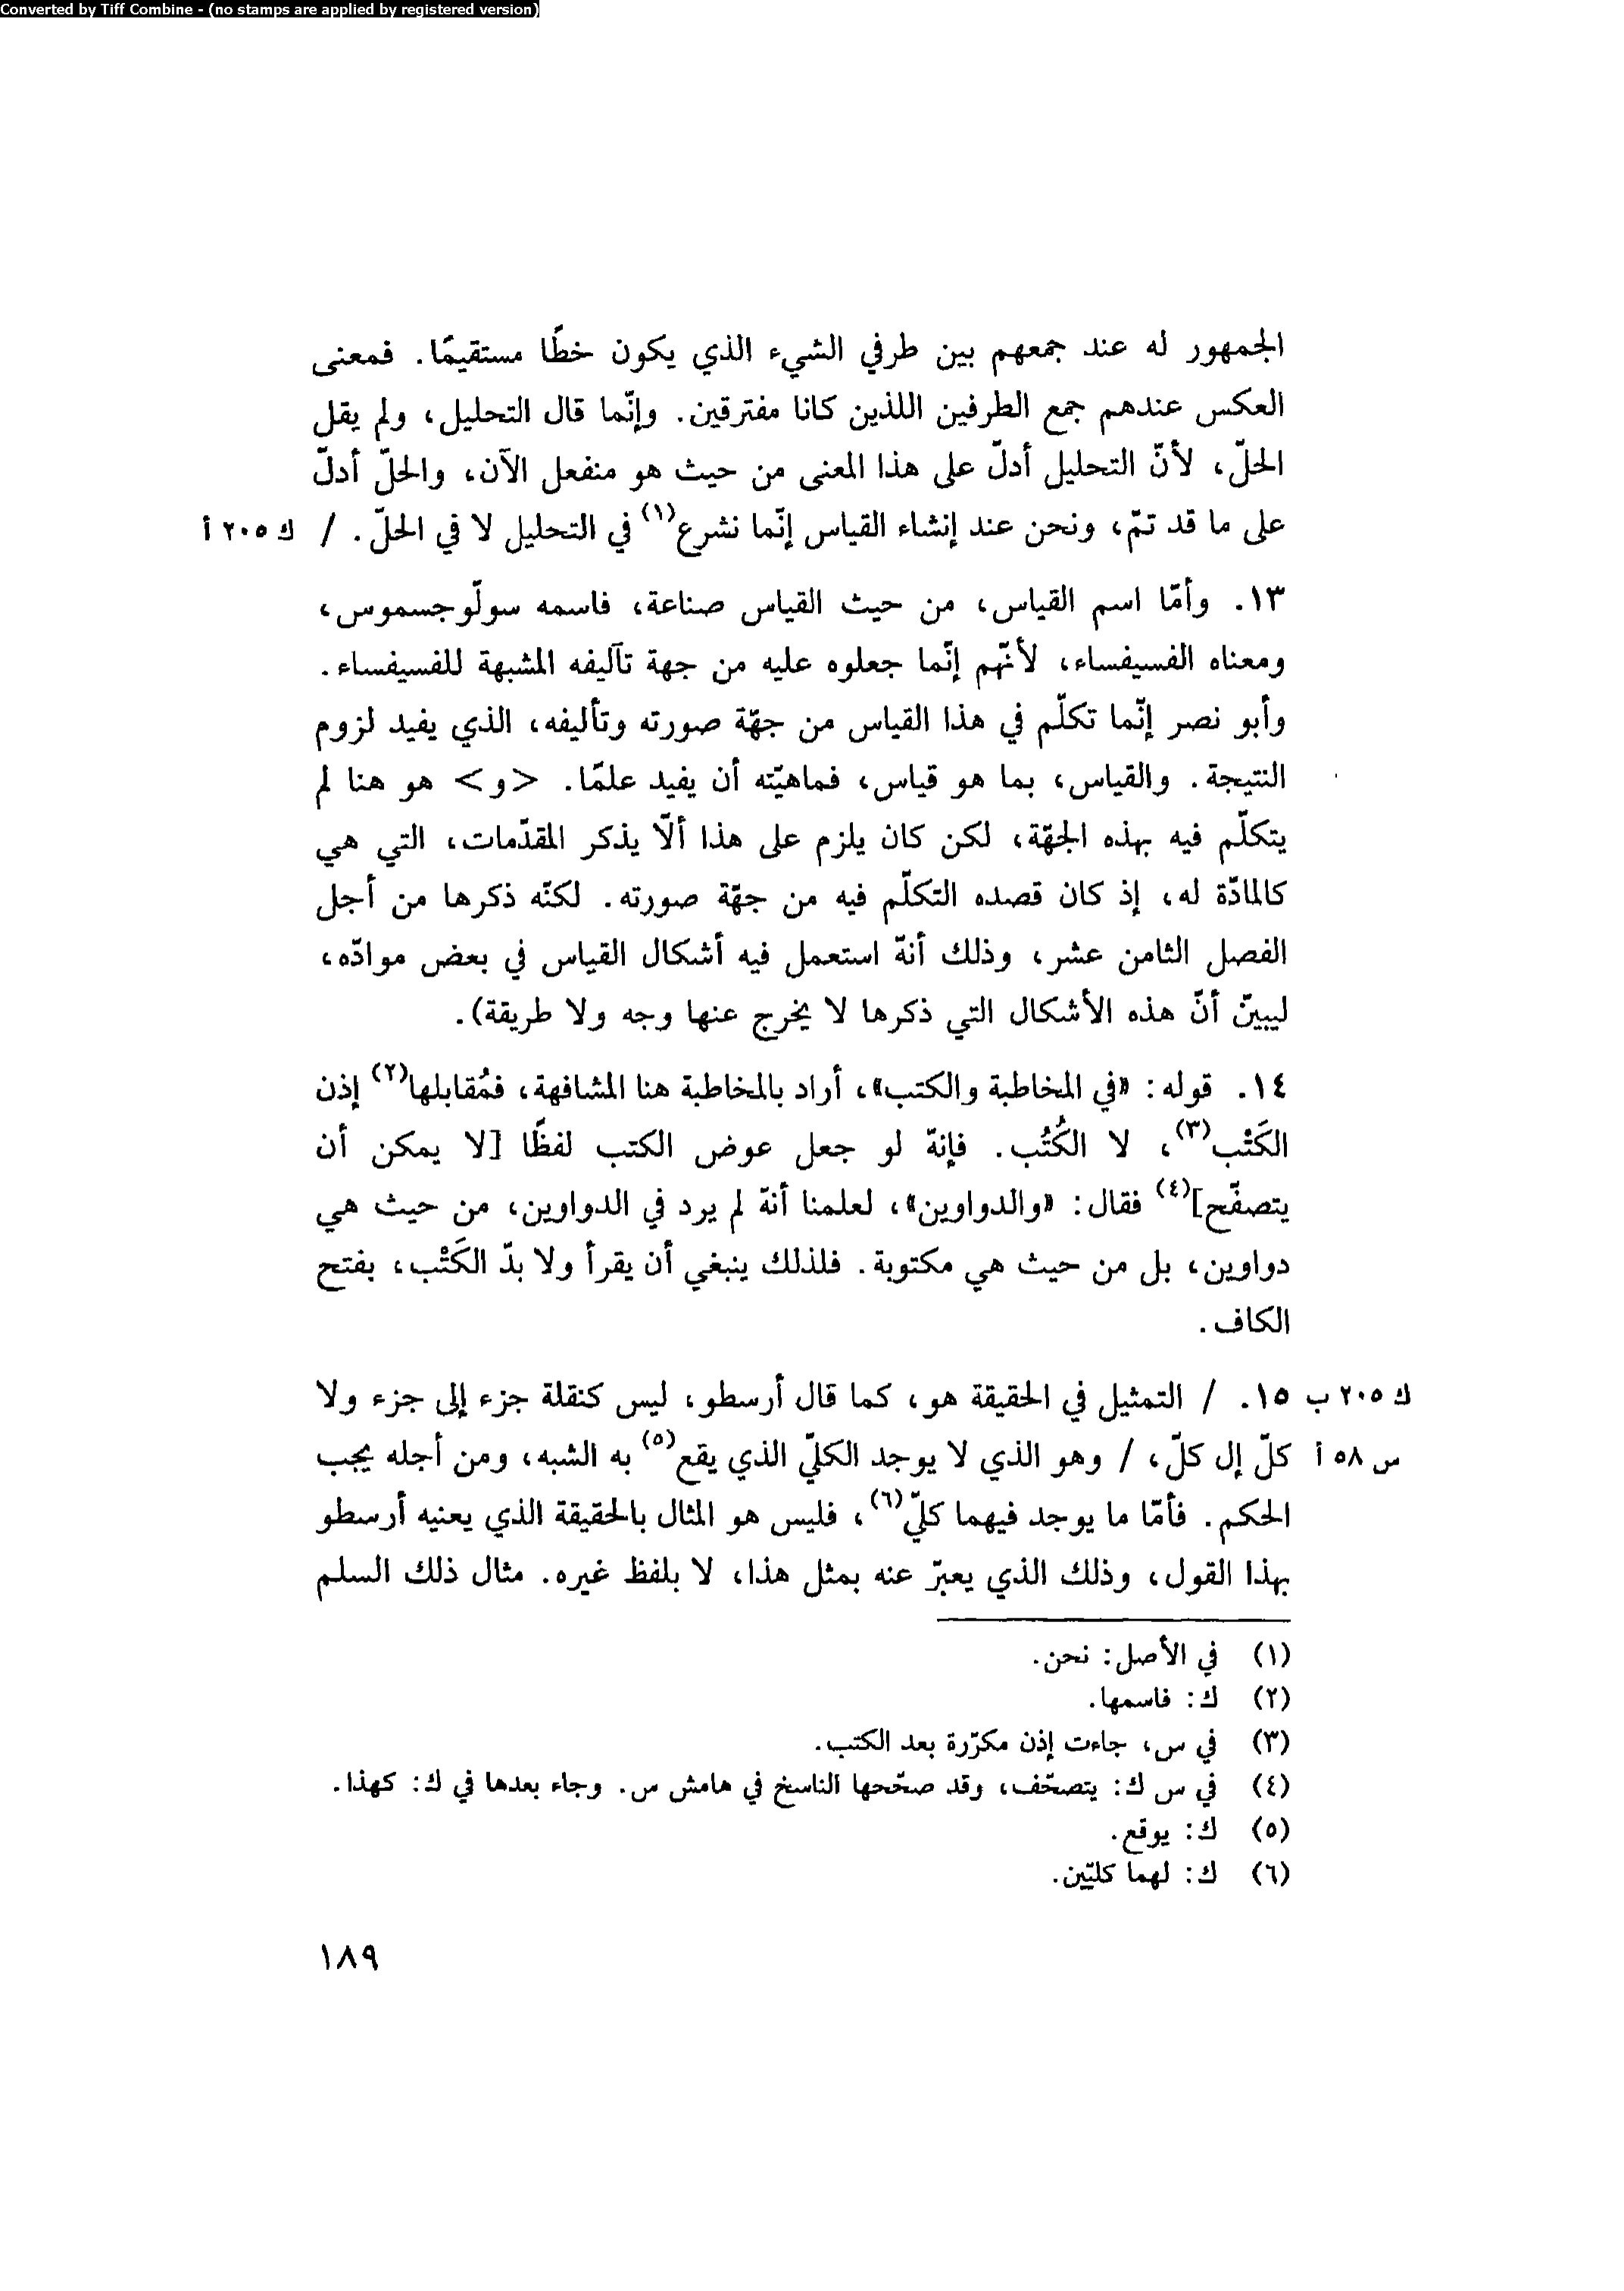 Converted by Tiff Combine - (no stamps are applied by registered version)
الجمهور له عند جمعهم بين طرفي الشيء الذي يكون خطًا مستقيمًا. فمعنى
العكس عندهم جمع الطرفين اللذين كانا مفترقين. وإنّما قال التحليل، ولم يقل
الحلّ، لأنّ التحليل أدلّ على هذا المعنى من حيث هو منفعل الآن، والحلّ أدلّ
على ما قد تمّ، ونحن عند إنشاء القياس إنّما نشرع(١) في التحليل لا في الحلّ. / ك ٢٠٥ أ
١٣. وأمّا اسم القياس، من حيث القياس صناعة، فاسمه سولّوجسموس،
ومعناه الفسيفساء، لأنّهم إنّما جعلوه عليه من جهة تآليفه المشبهة للفسيفساء.
وأبو نصر إنّما تكلّم في هذا القياس من جهّة صورته وتأليفه، الذي يفيد لزوم
النتيجة. والقياس، بما هو قياس، فماهيّته أن يفيد علمًا. <و> هو هنا لم
يتكلّم فيه بهذه الجهّة، لكن كان يلزم على هذا ألّا يذكر المقدّمات، التي هي
كالمادّة له، إذ كان قصده التكلّم فيه من جهّة صورته. لكنّه ذكرها من أجل
الفصل الثامن عشر، وذلك أنهّ استعمل فيه أشكال القياس في بعض موادّه،
ليبينّ أنّ هذه الأشكال التي ذكرها لا يخرج عنها وجه ولا طريقة).
١٤. قوله: «في المخاطبة والكتب»، أراد بالمخاطبة هنا المشافهة، فمُقابلها(٢) إذن
الكَتْب(٣)، لا الكُتُب. فإنهّ لو جعل عوض الكتب لفظًا [لا يمكن أن
يتصفّح](٤) فقال: «والدواوين»، لعلمنا أنهّ لم يرد في الدواوين، من حيث هي
دواوين، بل من حيث هي مكتوبة. فلذلك ينبغي أن يقرأ ولا بدّ الكَتْب، بفتح
الكاف.
ك ٢٠٥ ب ١٥. / التمثيل في الحقيقة هو، كما قال أرسطو، ليس كنقلة جزء إلى جزء ولا
س ٥٨ أ كلّ إل كلّ، / وهو الذي لا يوجد الكليّ الذي يقع(٥) به الشبه، ومن أجله يجب
الحكم. فأمّا ما يوجد فيهما كليّ(٦)، فليس هو المثال بالحقيقة الذي يعنيه أرسطو
بهذا القول، وذلك الذي يعبرّ عنه بمثل هذا، لا بلفظ غيره. مثال ذلك السلم
(١) في الأصل: نحن.
(٢) ك: فاسمها.
(٣) في س، جاءت إذن مكرّرة بعد الكتب.
(٤) في س ك: يتصحّف، وقد صحّحها الناسخ في هامش س. وجاء بعدها في ك: كهذا.
(٥) ك: يوقع.
(٦) ك: لهما كليّين.
١٨٩